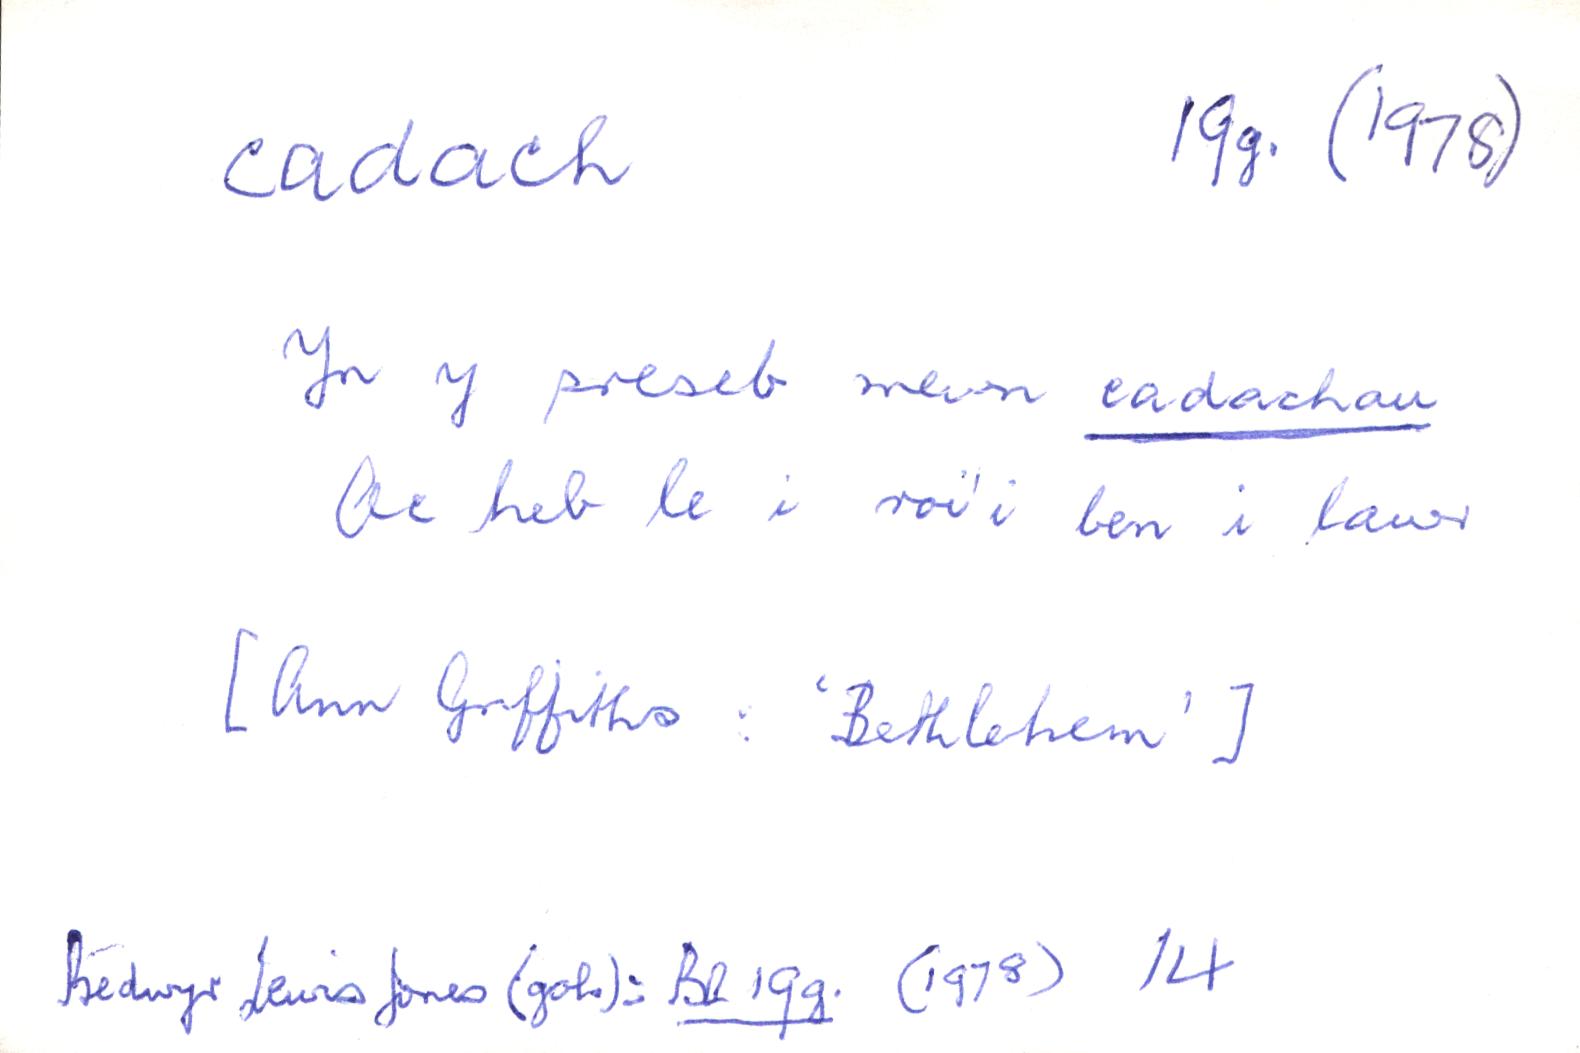 cadach 19g. (1978)
Yn y preseb mewn cadachau
Ac heb le i roi'i ben i lawr
[Ann Griffiths : 'Bethlehem']
Bedwyr Lewis Jones (gol.): Bl 19g. (1978) 14